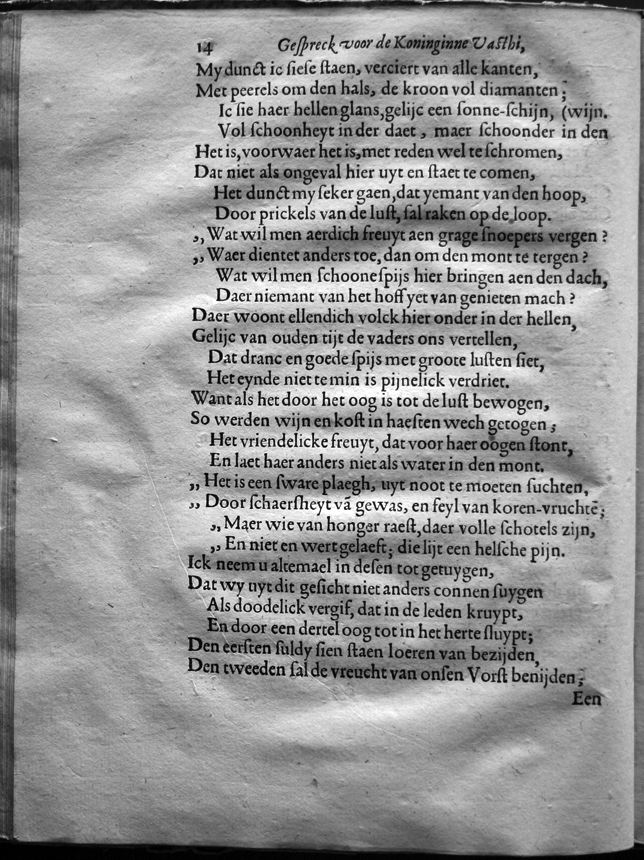 14 Geſpreck voor de Koninginne Vasthi,
My dunct ic ſieſe ſtaen, verciert van alle kanten,
Met peerels om den hals, de kroon vol diamanten;
Ic ſie haer hellen glans, gelijc een ſonne-ſchijn, (wijn.
Vol ſchoonheyt in der daet, maer ſchoonder in den
Het is, voorwaer het is, met reden wel te ſchromen,
Dat niet als ongeval hier uyt en ſtaet te comen,
Het dunct my ſeker gaen, dat yemant van den hoop,
Door prickels van de luſt, ſal raken op de loop.
,, Wat wil men aerdich freuyt aen grage ſnoepers vergen?
,, Waer dientet anders toe, dan om den mont te tergen?
Wat wil men ſchoone ſpijs hier bringen aen den dach,
Daer niemant van het hoff yet van genieten mach?
Daer woont ellendich volck hier onder in der hellen,
Gelijc van ouden tijt de vaders ons vertellen,
Dat dranc en goede ſpijs met groote luſten ſiet,
Het eynde niet te min is pijnelick verdriet.
Want als het door het oog is tot de luſt bewogen,
So werden wijn en koſt in haeſten wech getogen;
Het vriendelicke freuyt, dat voor haer oogen ſtont,
En laet haer anders niet als water in den mont.
,, Het is een ſware plaegh, uyt noot te moeten ſuchten,
,, Door ſchaerſheyt vā gewas, en feyl van koren-vruchtē;
,, Maer wie van honger raeſt, daer volle ſchotels zijn,
,, En niet en wert gelaeft; die lijt een helſche pijn.
Ick neem u altemael in deſen tot getuygen,
Dat wy uyt dit geſicht niet anders connen ſuygen
Als doodelick vergif, dat in de leden kruypt,
En door een dertel oog tot in het herte ſluypt;
Den eerſten ſuldy ſien ſtaen loeren van bezijden,
Den tweeden ſal de vreucht van onſen Vorſt benijden;
Een